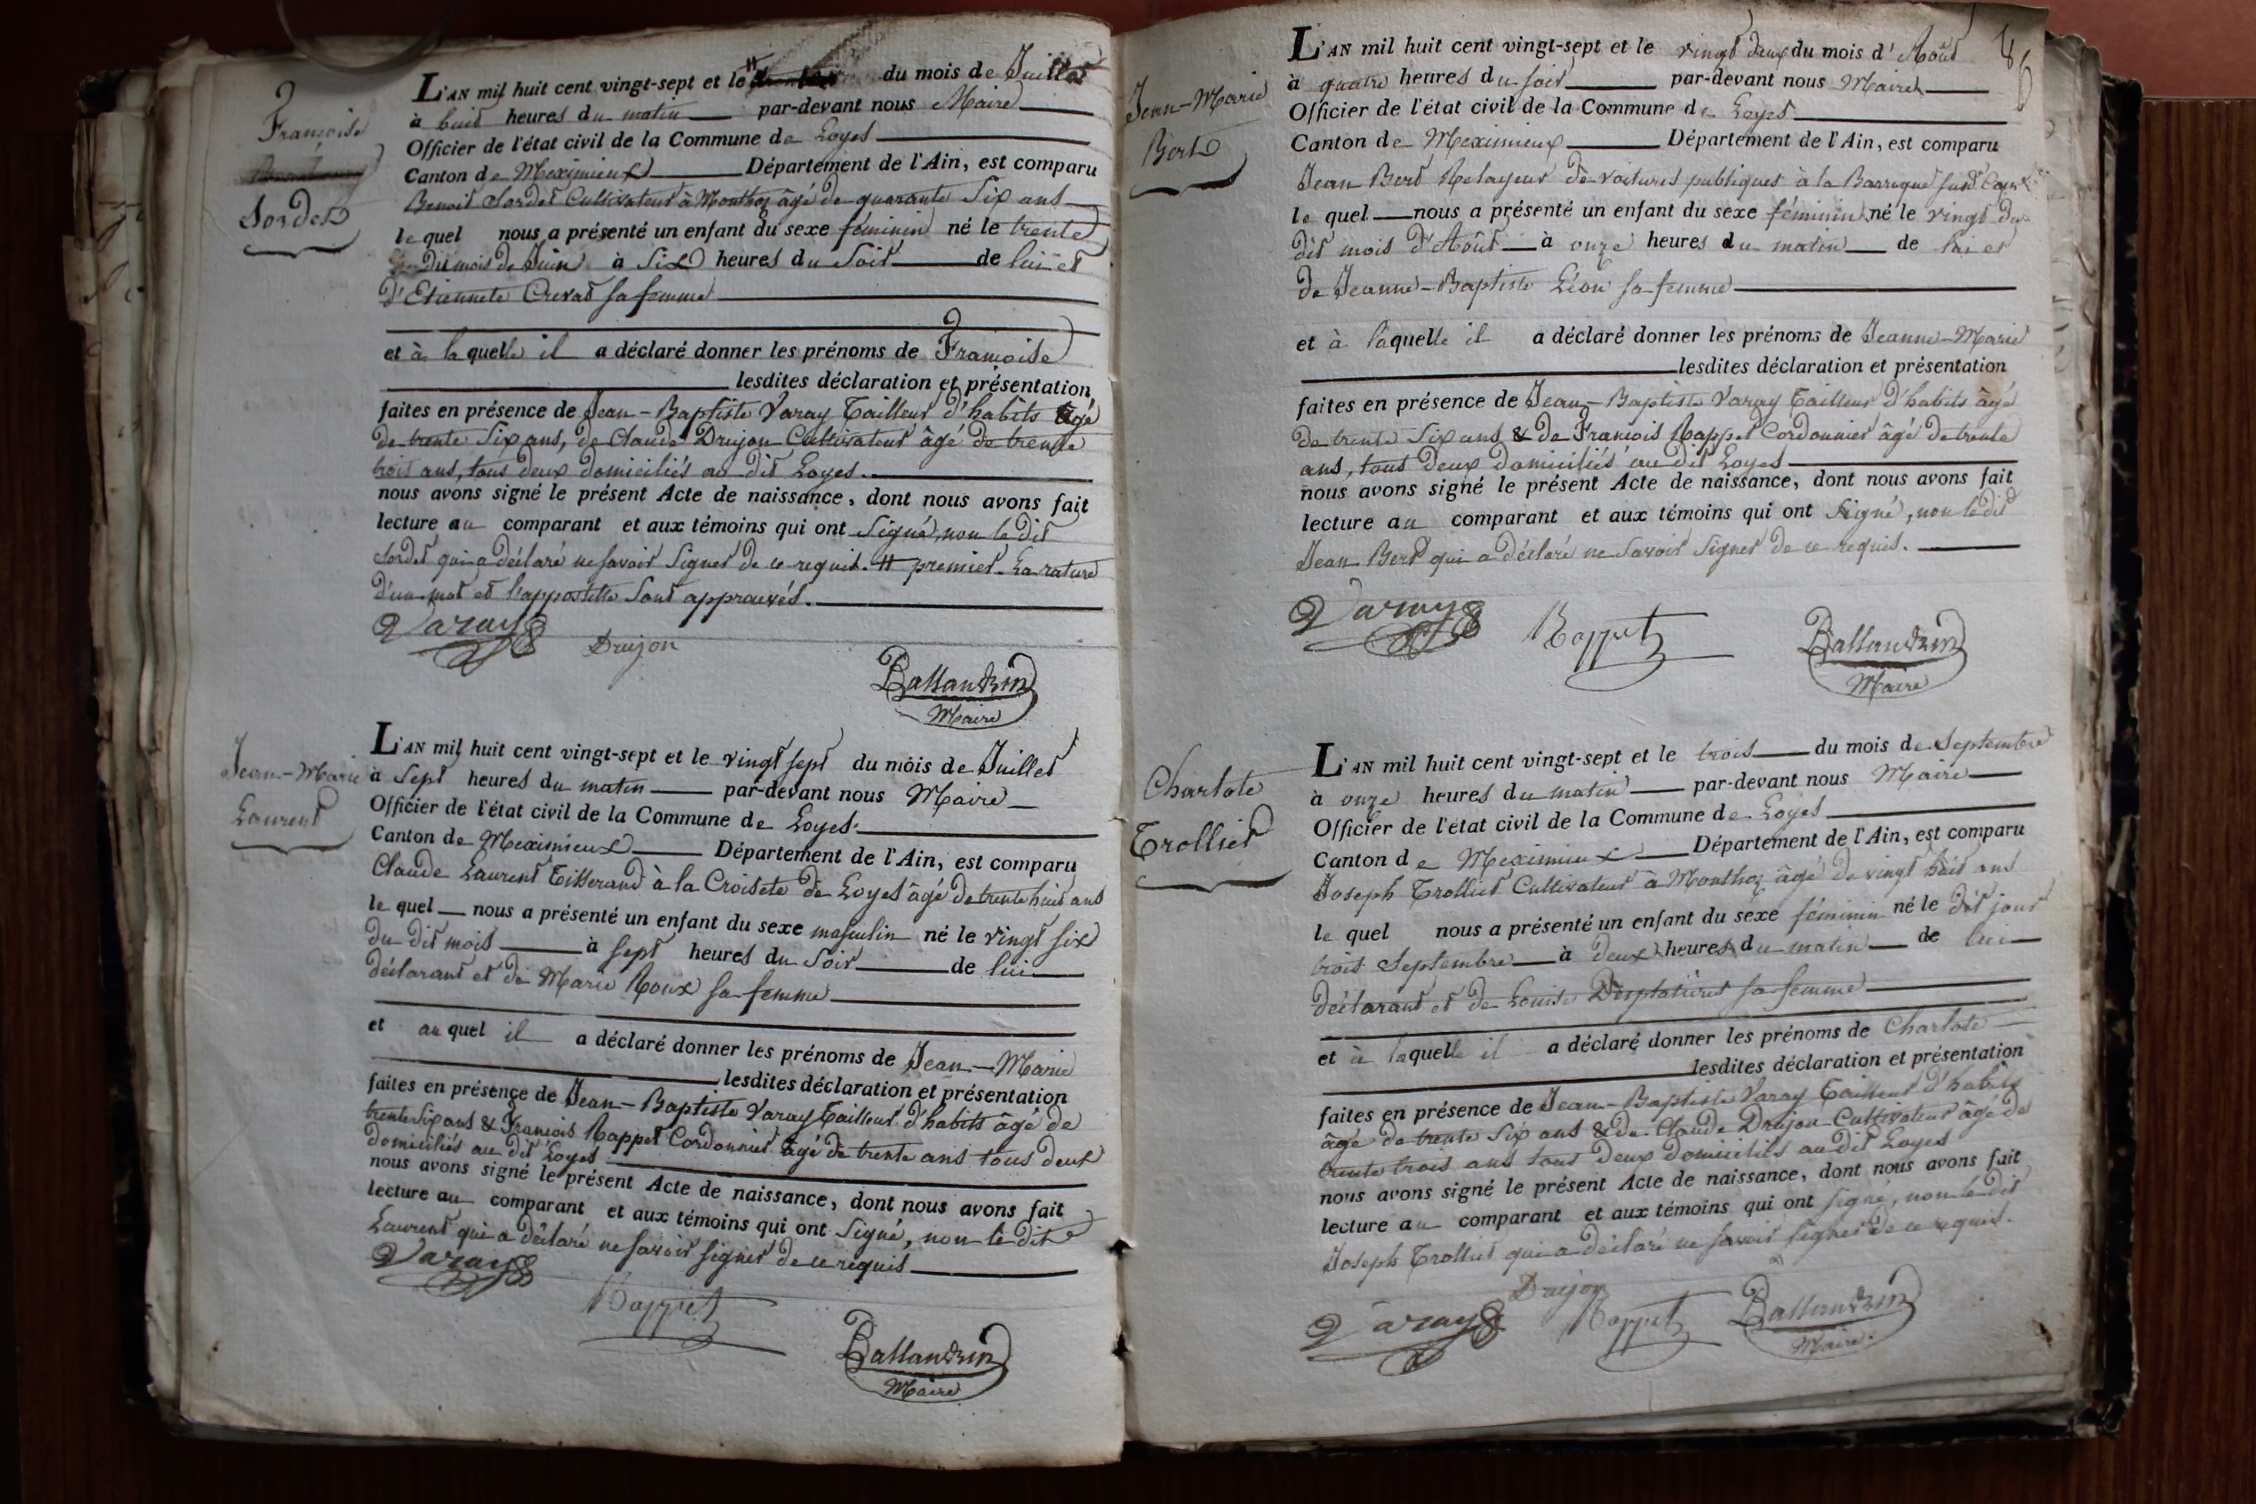 Françoise
Sordet
L'AN mil huit cent vingt-sept et le # du mois de Juillet
à huit heures du matin par-devant nous Maire
Officier de l'état civil de la Commune de Loyes
Canton de Meximieux Département de l'Ain, est comparu
Benoit Sordet Cultivateur à Monthoz âgé de quarante Six ans
le quel nous a présenté un enfant du sexe féminin né le trente
du mois de Juin à Six heures du Soir de lui et
d'Etiennete Crevat sa femme
et à la quelle il a déclaré donner les prénoms de Françoise
lesdites déclaration et présentation
faites en présence de Jean-Baptiste Varay Tailleur d'habits âgé
de trente Six ans, de Claude Drujon Cultivateur âgé de trente
trois ans, tous deux domiciliés au dit Loyes.
nous avons signé le présent Acte de naissance, dont nous avons fait
lecture au comparant et aux témoins qui ont Signé, non le dit
Sordet qui a déclaré ne savoir Signer de ce requis. # premier. La rature
d'un mot et l'appostille Sont approuvés.
Varay Drujon
Ballandrin
Maire
Jean-Marie
Laurent
L'AN mil huit cent vingt-sept et le vingt sept du mois de Juillet
à Sept heures du matin par-devant nous Maire
Officier de l'état civil de la Commune de Loyes.
Canton de Meximieux Département de l'Ain, est comparu
Claude Laurent Tisserand à la Croisete de Loyes âgé de trente huit ans
le quel nous a présenté un enfant du sexe masculin né le vingt six
du dit mois à sept heures du Soir de lui
déclarant et de Marie Roux sa femme
et au quel il a déclaré donner les prénoms de Jean-Marie
lesdites déclaration et présentation
faites en présence de Jean-Baptiste Varay Tailleur d'habits âgé de
trente Six ans & François Rappet Cordonnier âgé de trente ans tous deux
domiciliés au dit Loyes
nous avons signé le présent Acte de naissance, dont nous avons fait
lecture au comparant et aux témoins qui ont Signé, non le dit
Laurent qui a déclaré ne savoir signer de ce requis
Varay
Rappet
Ballandrin
Maire
Jean-Marie
Bert
L'AN mil huit cent vingt-sept et le vingt deux du mois d'Août
à quatre heures du soir par-devant nous Maire
Officier de l'état civil de la Commune de Loyes
Canton de Meximieux Département de l'Ain, est comparu
Jean Bert Relayeur de voitures publiques à la Barraque
le quel nous a présenté un enfant du sexe féminin né le vingt du
dit mois d'Août à onze heures du matin de lui et
de Jeanne-Baptiste Léon sa femme
et à laquelle il a déclaré donner les prénoms de Jeanne-Marie
lesdites déclaration et présentation
faites en présence de Jean-Baptiste Varay Tailleur d'habits âgé
de trente Six ans & de François Rappet Cordonnier âgé de trente
ans, tous deux domiciliés au dit Loyes
nous avons signé le présent Acte de naissance, dont nous avons fait
lecture au comparant et aux témoins qui ont Signé, non le dit
Jean Bert qui a déclaré ne Savoir Signer de ce requis.
Varay Rappet Ballandrin
Maire
Charlote
Trollier
L'AN mil huit cent vingt-sept et le trois du mois de Septembre
à onze heures du matin par-devant nous Maire
Officier de l'état civil de la Commune de Loyes
Canton de Meximieux Département de l'Ain, est comparu
Joseph Trollier Cultivateur à Monthoz âgé de vingt huit ans
le quel nous a présenté un enfant du sexe féminin né le dit jour
trois Septembre à deux heures du matin de lui
déclarant et de Louise Desplatures sa femme
et à laquelle il a déclaré donner les prénoms de Charlote
lesdites déclaration et présentation
faites en présence de Jean-Baptiste Varay Tailleur d'habits
âgé de trente Six ans & de Claude Drujon Cultivateur âgé de
trente trois ans tous deux domiciliés au dit Loyes
nous avons signé le présent Acte de naissance, dont nous avons fait
lecture au comparant et aux témoins qui ont signé, non le dit
Joseph Trollier qui a déclaré ne savoir signer de ce requis.
Varay Drujon Rappet Ballandrin
Maire.